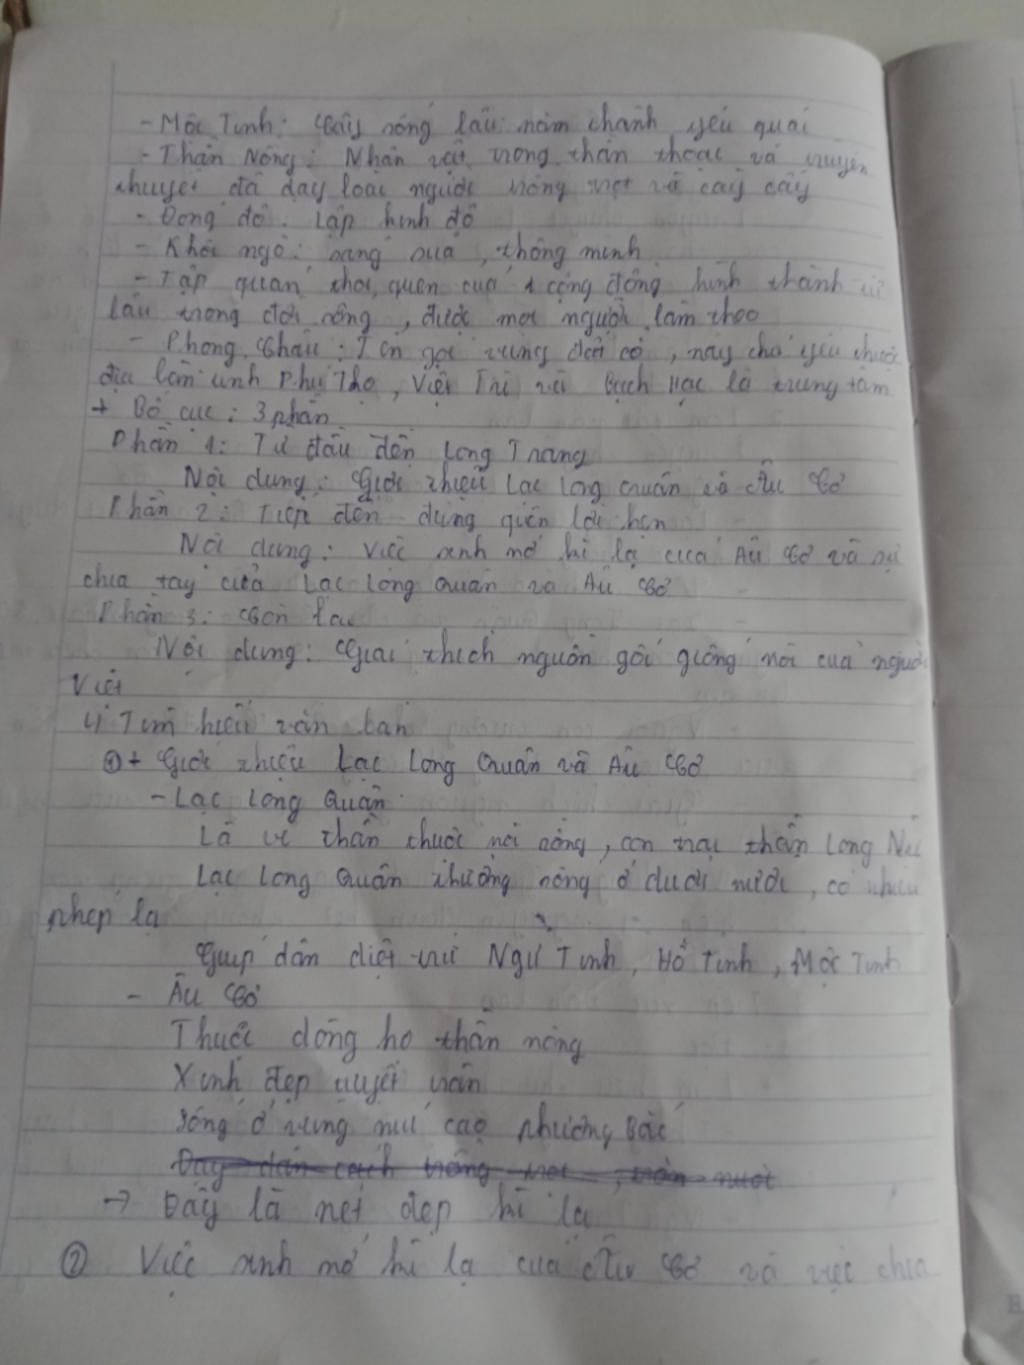 - Mộc Tinh: Cây sống lâu năm thành yêu quái
- Thần Nông: Nhân vật trong thần thoại và truyền
thuyết đã dạy loài người trồng trọt và cày cấy
- Đóng đô: Lập kinh đô
- Khôi ngô: sáng sủa, thông minh
- Tập quán thói quen của 1 cộng đồng hình thành từ
lâu trong đời sống, được mọi người làm theo
- Phong Châu: Tên gọi vùng đất cổ, nay chủ yếu thuộc
địa bàn tỉnh Phú Thọ, Việt Trì và Bạch Hạc là trung tâm
+ Bố cục: 3 phần
Phần 1: Từ đầu đến Long Trang
Nội dung: Giới thiệu Lạc Long Quân và Âu Cơ
Phần 2: Tiếp đến đừng quên lời hẹn
Nội dung: Việc sinh nở kì lạ của Âu Cơ và sự
chia tay của Lạc Long Quân và Âu Cơ
Phần 3: Còn lại
Nội dung: Giải thích nguồn gốc giống nòi của người
Việt
4) Tìm hiểu văn bản
① + Giới thiệu Lạc Long Quân và Âu Cơ
- Lạc Long Quân
Là vị thần thuộc nòi rồng, con trai thần Long Nữ
Lạc Long Quân thường sống ở dưới nước, có nhiều
phép lạ
Giúp dân diệt trừ Ngư Tinh, Hồ Tinh, Mộc Tinh
- Âu Cơ
Thuộc dòng họ thần nông
Xinh đẹp tuyệt trần
Sống ở vùng núi cao phương Bắc
Dạy dân cách trồng trọt,
→ Đây là nét đẹp kì lạ
② Việc sinh nở kì lạ của Âu Cơ và việc chia